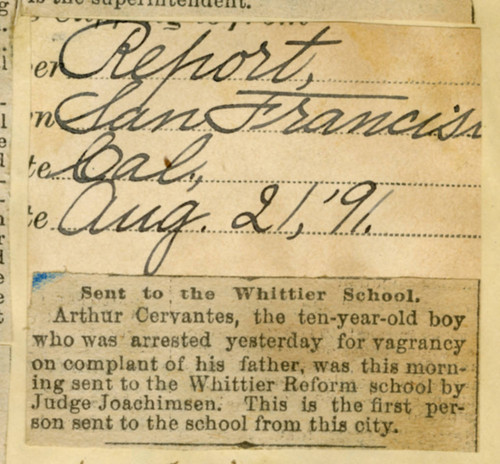 is the superintendent.
er Report,
n San Francis
te Cal.,
te Aug. 21, '91.
Sent to the Whittier School.
Arthur Cervantes, the ten-year-old boy
who was arrested yesterday for vagrancy
on complant of his father, was this morn-
ing sent to the Whittier Reform school by
Judge Joachimsen. This is the first per-
son sent to the school from this city.